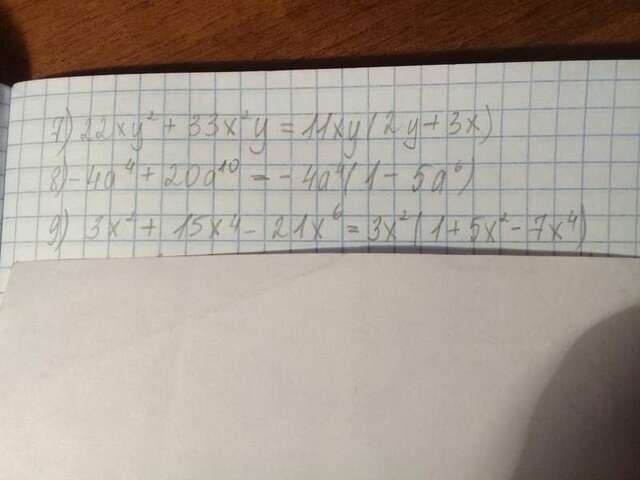 7) 22xy² + 33x²y = 11xy(2y+3x)
8) -4a⁴ + 20a¹⁰ = -4a⁴(1-5a⁶)
9) 3x² + 15x4 - 21x⁶ = 3x²(1+5x²-7x⁴)